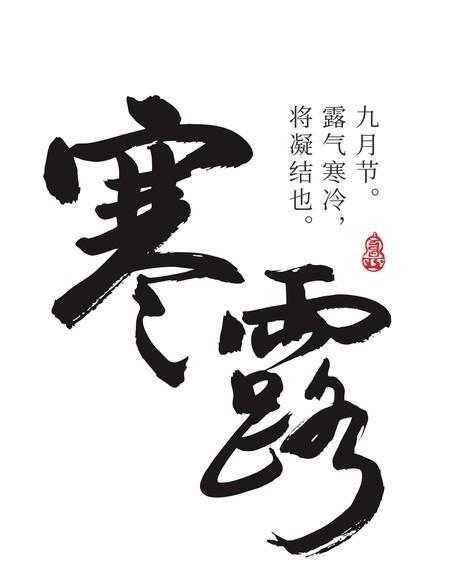 寒露
九月节。
露气寒冷，
将凝结也。